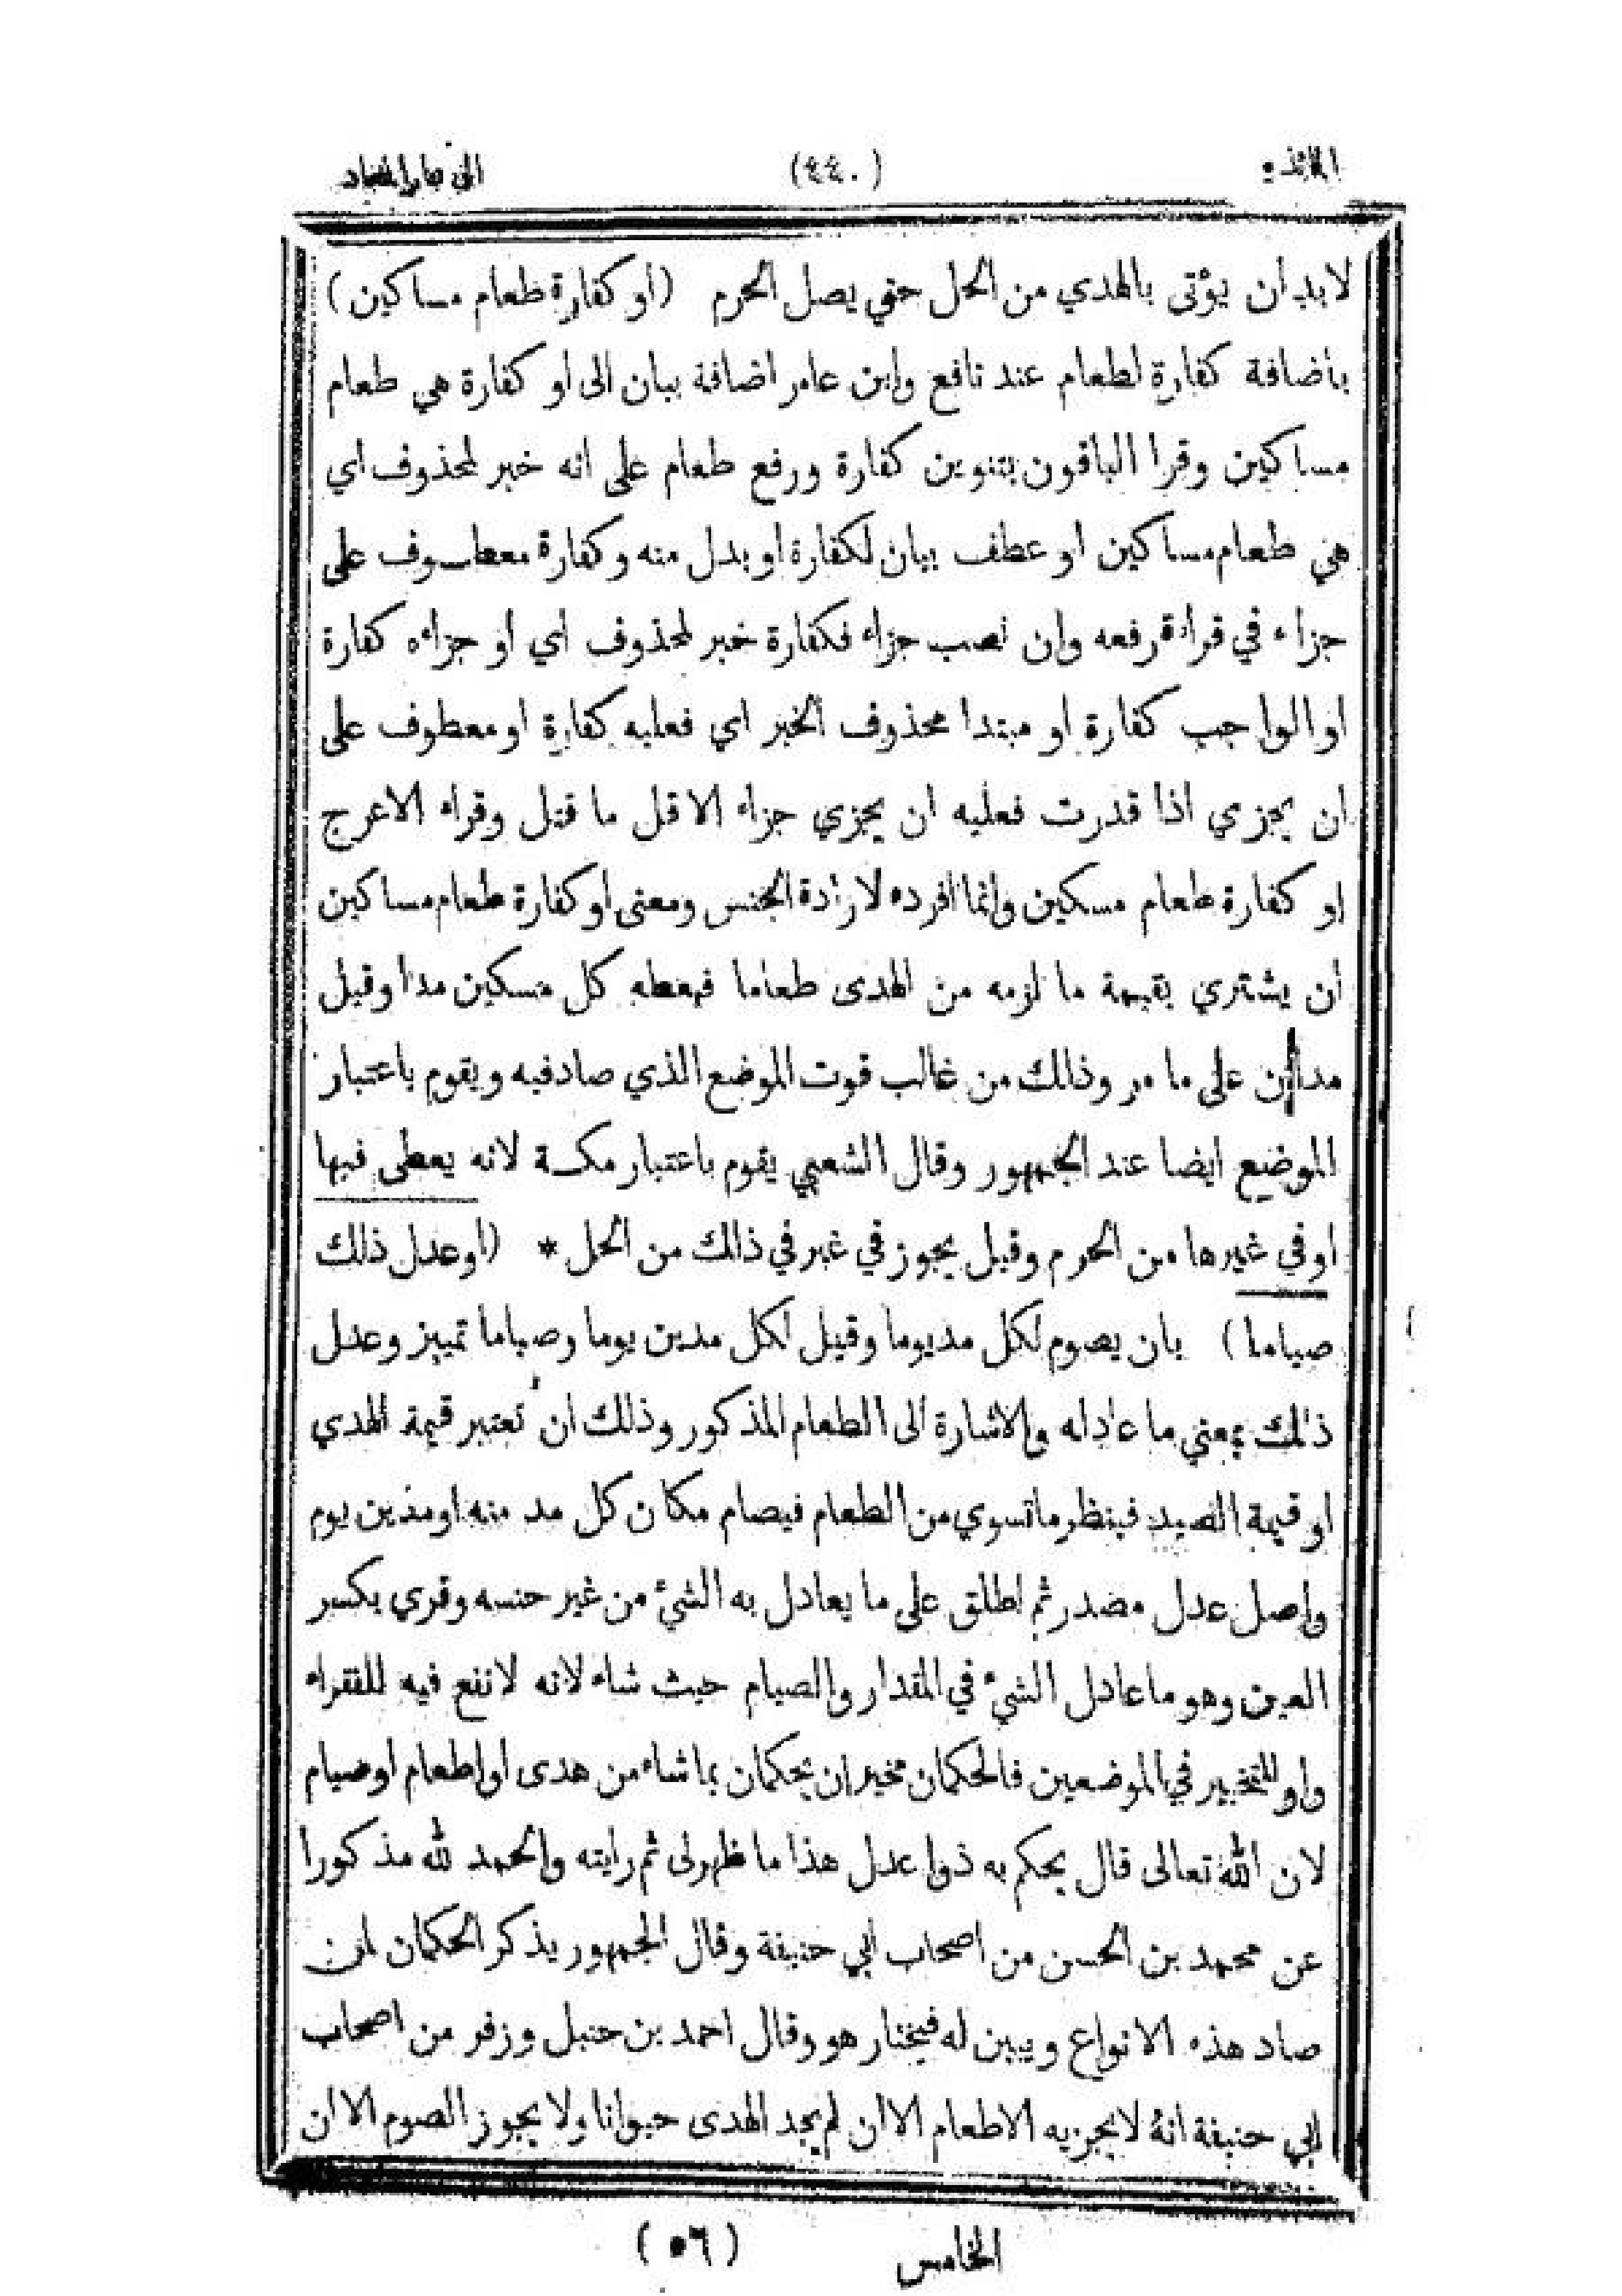 المائدة (٤٤٠) الى دار المعاد
لابد أن يؤتى بالهدي من الحل حتي يصل الحرم (او كفارة طعام مساكين)
باضافة كفارة لطعام عند نافع وابن عامر اضافة بيان الى او كفارة هي طعام
مساكين وقرا الباقون بتنوين كفارة ورفع طعام على انه خبر لمحذوف اي
هي طعام مساكين او عطف بيان لكفارة او بدل منه وكفارة معطوف على
جزاء في قراءة رفعه وان نصب جزاء فكفارة خبر لمحذوف اي او جزاءه كفارة
او الواجب كفارة او مبتدا محذوف الخبر اي فعليه كفارة او معطوف على
ان يجزي اذا قدرت فعليه ان يجزي جزاء الا قل ما قتل وقراء الاعرج
او كفارة طعام مسكين وانما افرده لارادة الجنس ومعنى او كفارة طعام مساكين
أن يشتري بقيمة ما لزمه من الهدى طعاما فيعطه كل مسكين مدا وقيل
مدان على ما مر وذالك من غالب قوت الموضع الذي صاد فيه ويقوم باعتبار
الموضع ايضا عند الجمهور وقال الشعبي يقوم باعتبار مكة لانه يعطى فيها
او في غيرها من الحرم وقيل يجوز في غير في ذالك من الحل * (او عدل ذلك
صياما) بان يصوم لكل مد يوما وقيل لكل مدين يوما وصياما تمييز وعدل
ذالك بمعني ما عادله والاشارة الى الطعام المذكور وذلك ان تعتبر قيمة الهدي
او قيمة الصيد فينظر ما تسوي من الطعام فيصام مكان كل مد منه او مدين يوم
واصل عدل مصدر ثم اطلق على ما يعادل به الشئ من غير جنسه وقري بكسر
العين وهو ما عادل الشئ في المقدار والصيام حيث شاء لانه لانفع فيه للفقراء
واو للتخيير في الموضعين فالحكمان مخيران يحكمان بما شاء من هدى او اطعام او صيام
لان الله تعالى قال يحكم به ذوا عدل هذا ما ظهر لى ثم رايته والحمد لله مذكورا
عن محمد بن الحسن من اصحاب ابي حنيفة وقال الجمهور يذكر الحكمان لمن
صاد هذه الانواع ويبين له فيختار هو وقال احمد بن حنبل وزفر من اصحاب
ابي حنيفة انه لا يجزيه الاطعام الا ان لم يجد الهدى حيوانا ولا يجوز الصوم الا ان
الخامس (٥٦)